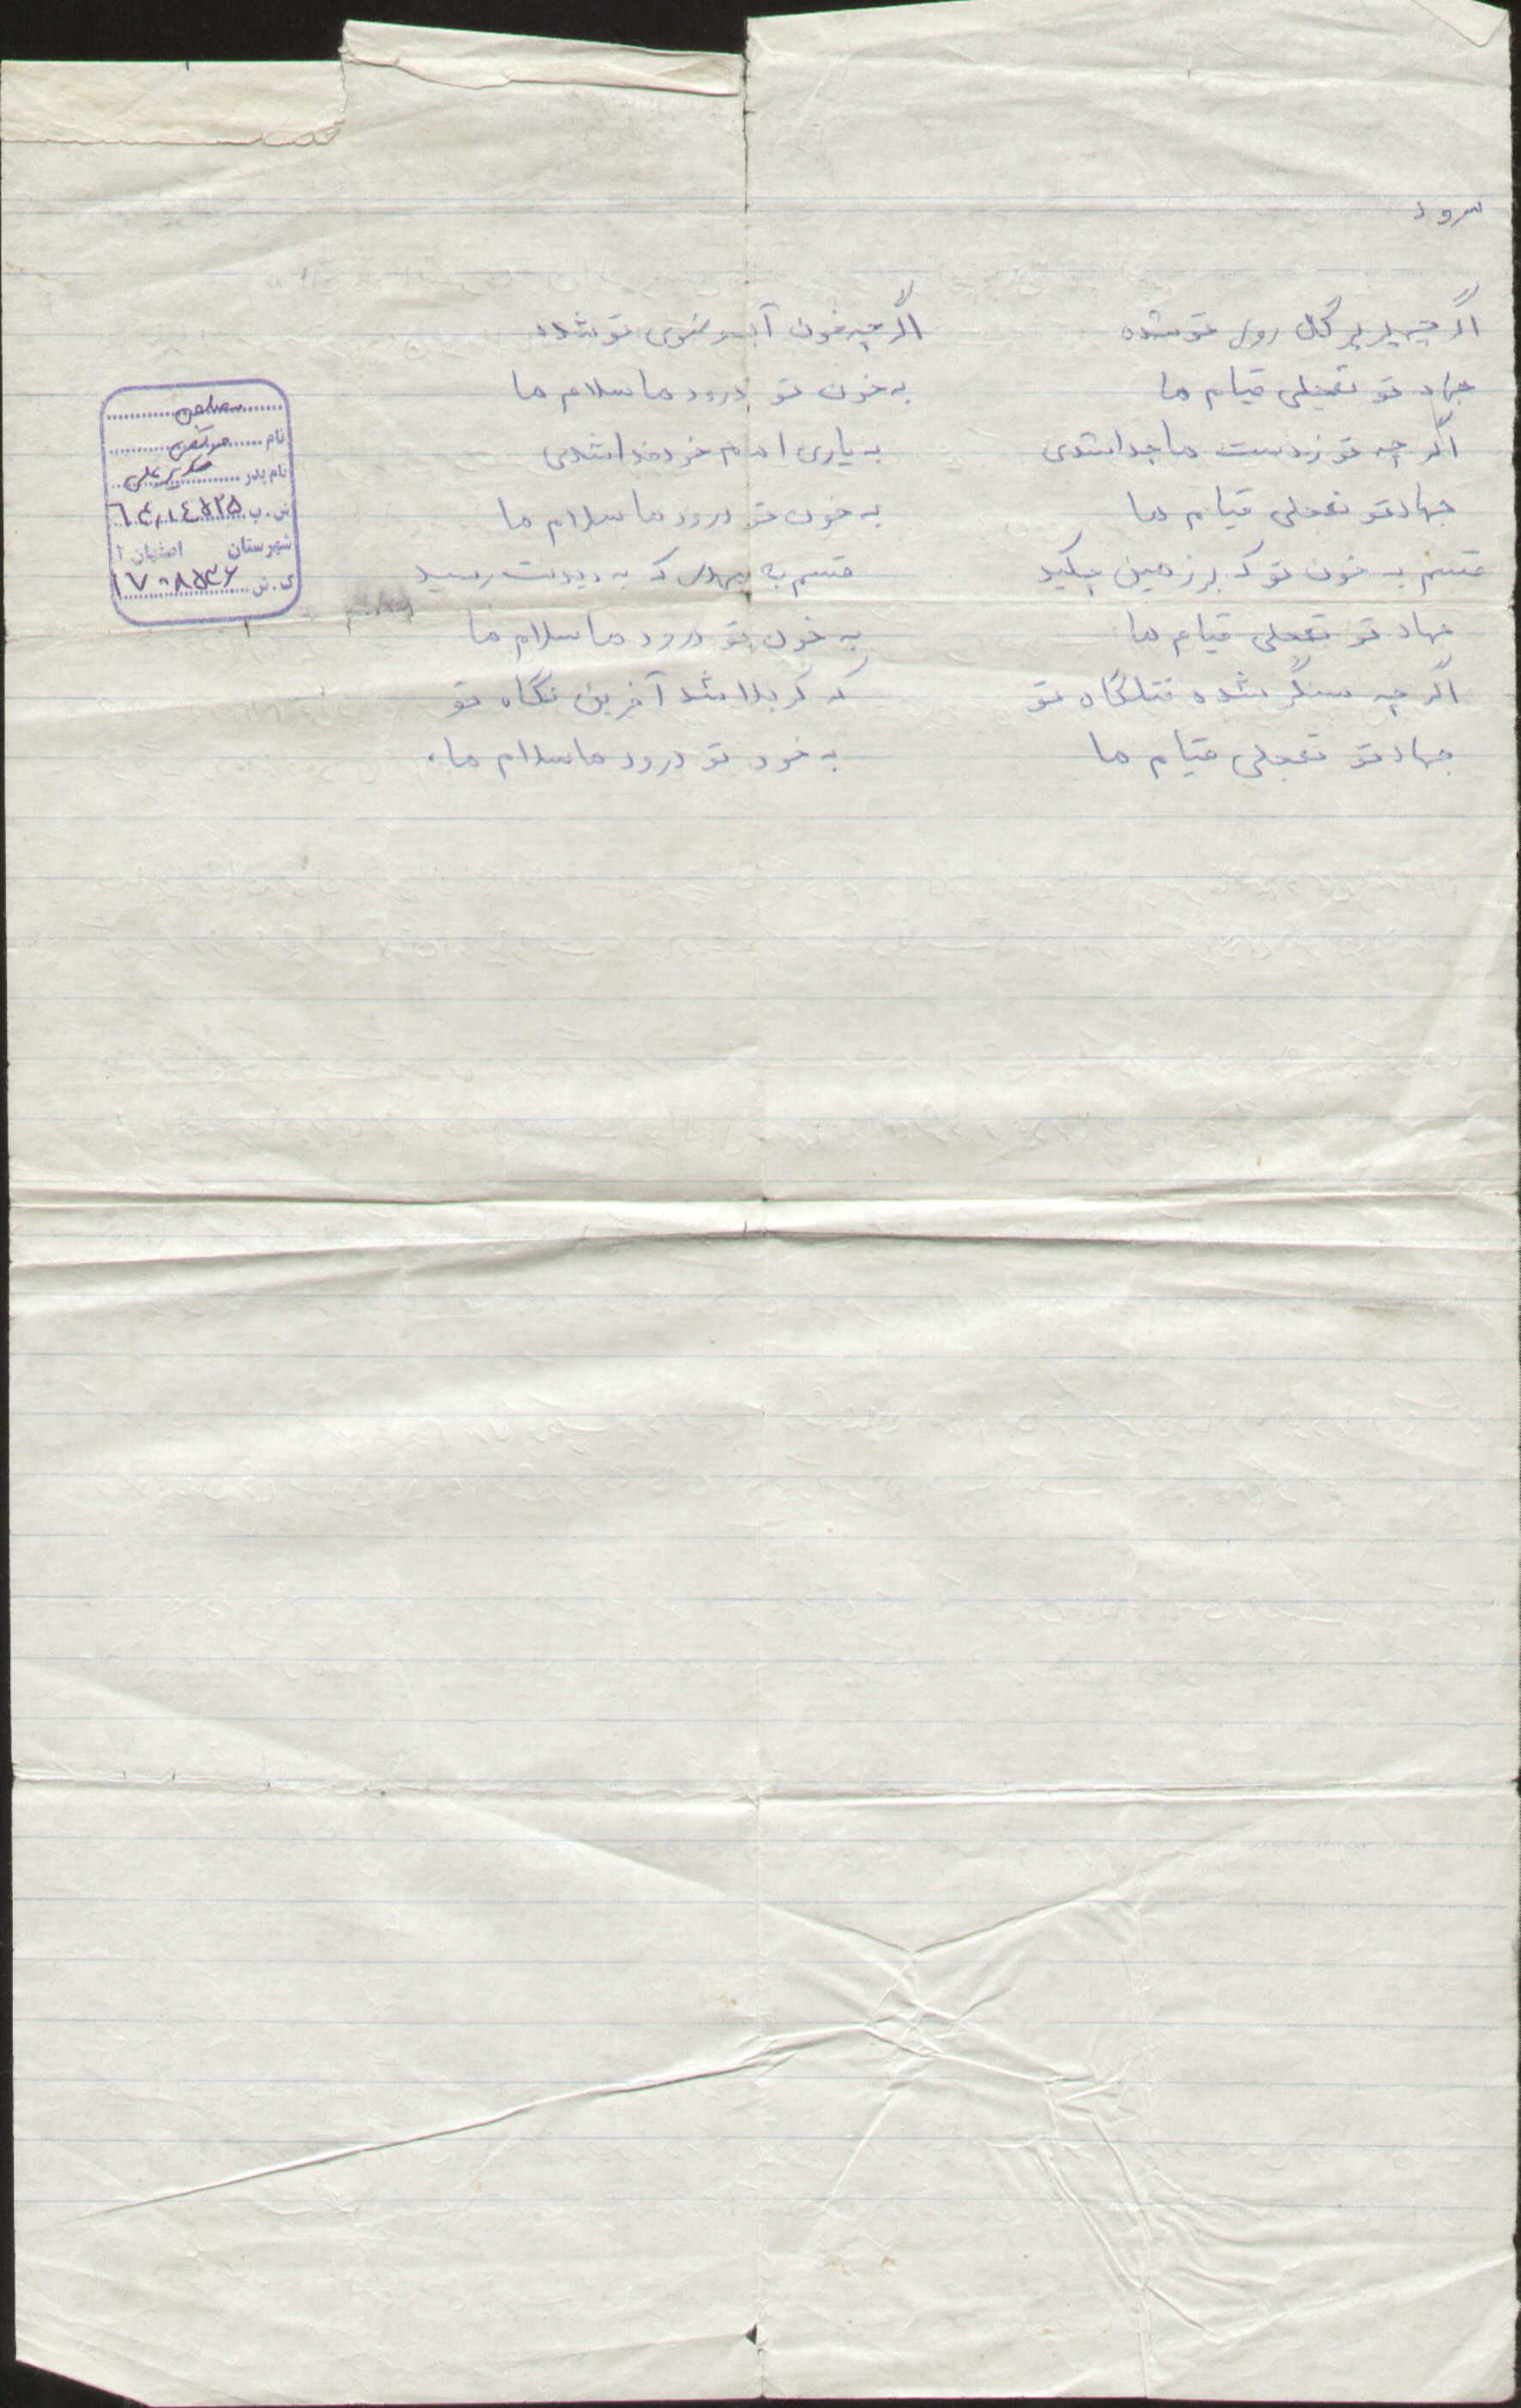 سرود
اگر چه پر پر گل روی تو شده اگر چه خون آب وضوی تو شده
جهاد تو تجلی قیام ما به خون تو درود ما سلام ما
اگر چه تو ز دست ما جدا شدی به یاری امام خود فدا شدی
جهاد تو تجلی قیام ما به خون تو درود ما سلام ما
قسم به خون تو که بر زمین چکید قسم به که به دیدنت رسید
جهاد تو تجلی قیام ما به خون تو درود ما سلام ما
اگر چه سنگر شده قتلگاه تو که کربلا شد آخرین نگاه تو
جهاد تو تجلی قیام ما به خون تو درود ما سلام ما
نام
نام پدر
ش.پ
شهرستان اصفهان ۲
ک.ش ۱۷۰۸۵۴۶